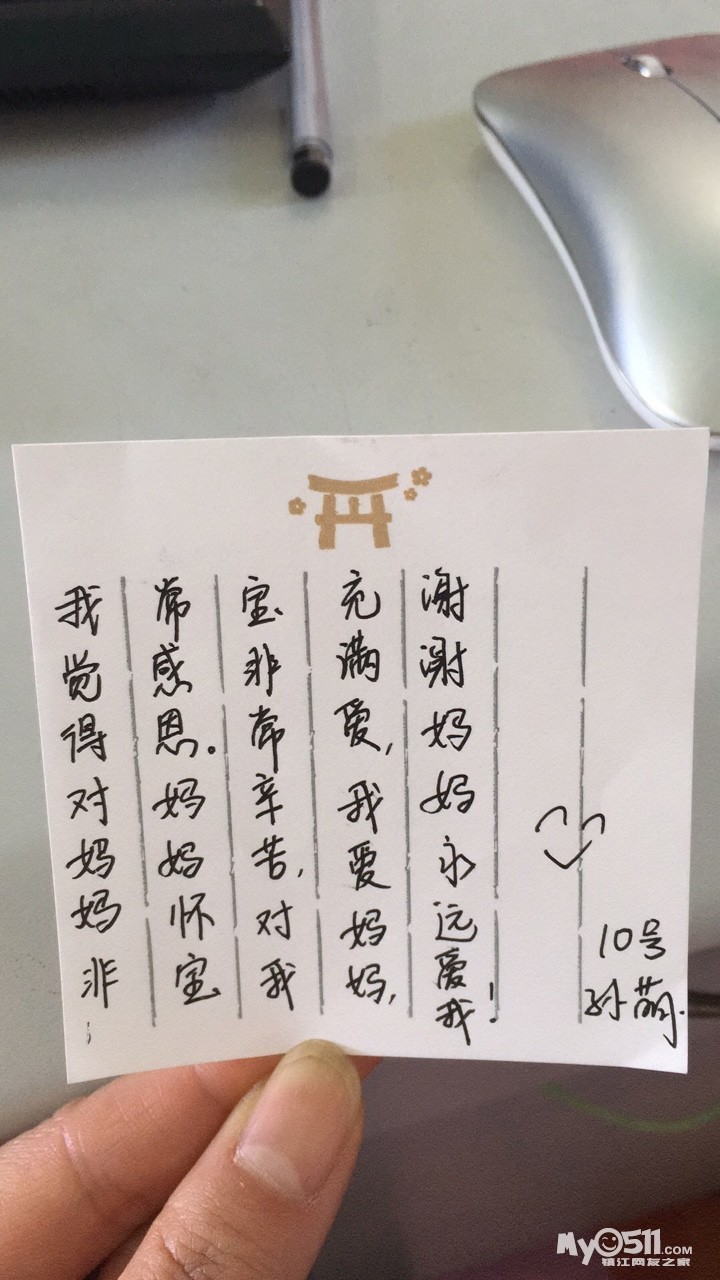 我觉得对妈妈非
常感恩。妈妈怀宝
宝非常辛苦,对我
充满爱,我爱妈妈,
谢谢妈妈永远爱我!
10号
孙萌.
My0511.COM
镇江网友之家